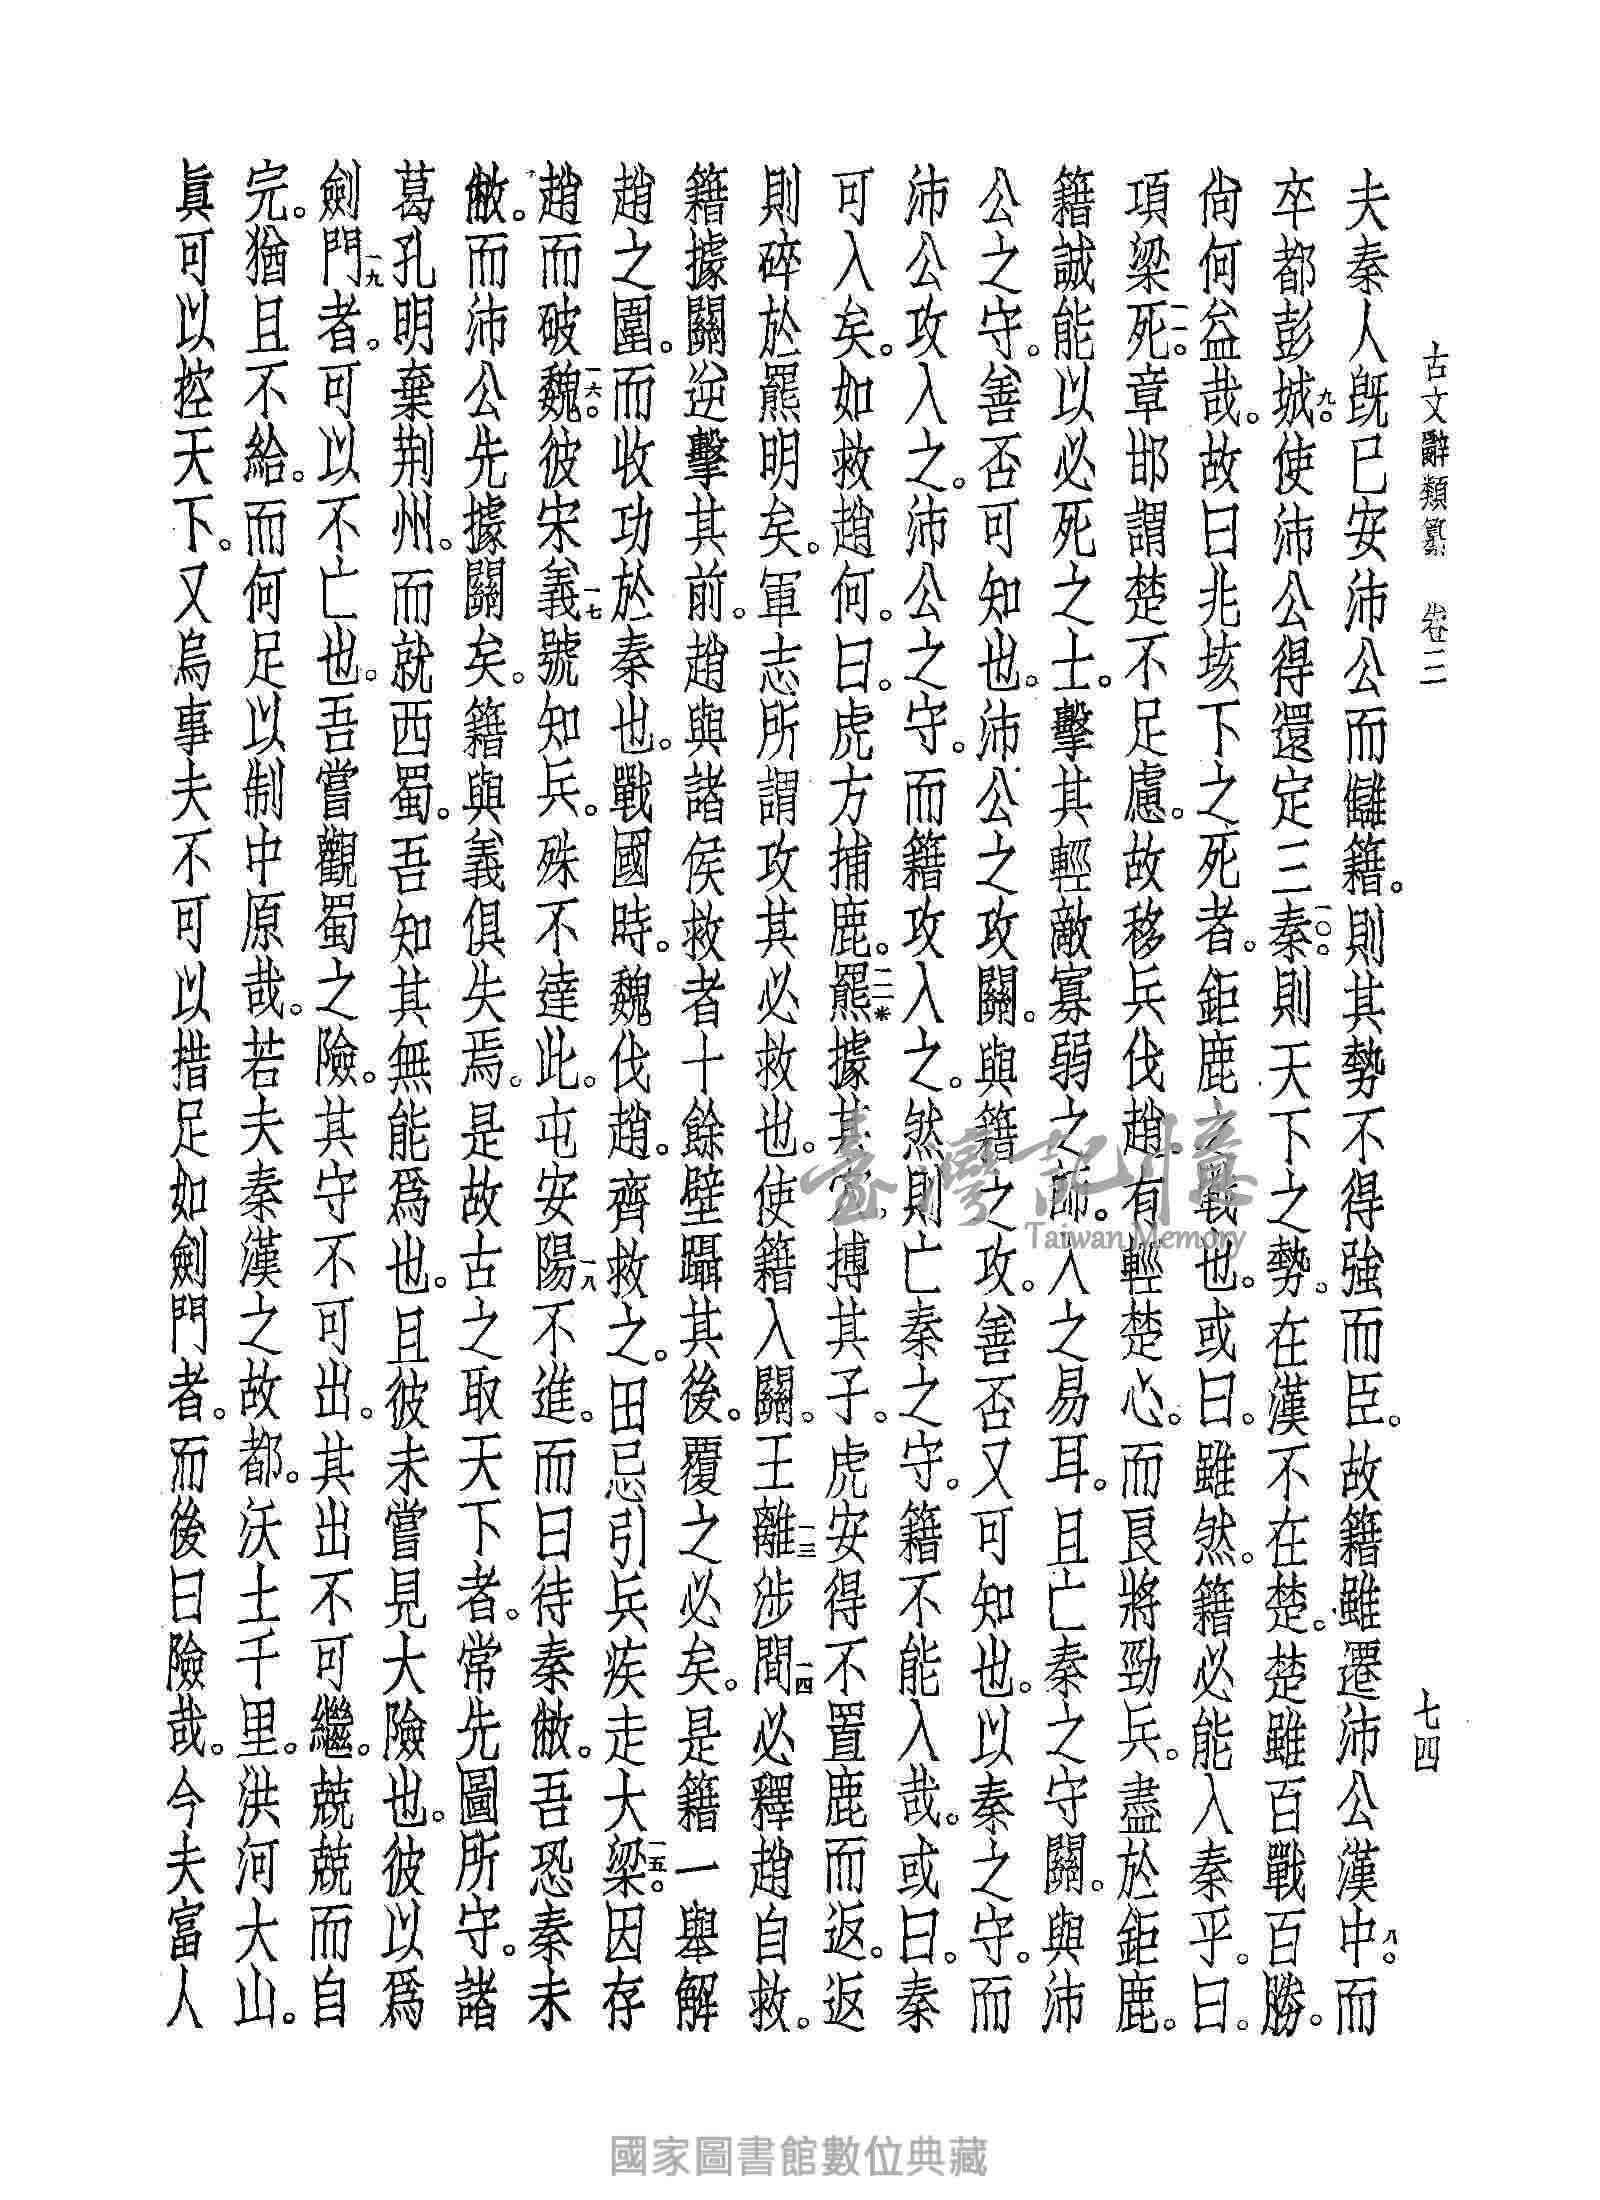 古文辭類纂　卷三　七四
夫秦人既已安沛公而讎籍。則其勢不得強而臣。故籍雖遷沛公漢中八。而
卒都彭城九。使沛公得還定三秦一〇。則天下之勢。在漢不在楚。楚雖百戰百勝。
尙何益哉。故曰兆垓下之死者。鉅鹿之戰也。或曰。雖然。籍必能入秦乎。曰。
項梁死一一。章邯謂楚不足慮。故移兵伐趙。有輕楚心。而良將勁兵。盡於鉅鹿。
籍誠能以必死之士。擊其輕敵寡弱之師。入之易耳。且亡秦之守關。與沛
公之守。善否可知也。沛公之攻關。與籍之攻。善否又可知也。以秦之守。而
沛公攻入之。沛公之守。而籍攻入之。然則亡秦之守。籍不能入哉。或曰。秦
可入矣。如救趙何。曰。虎方捕鹿。羆一二※據其穴。搏其子。虎安得不置鹿而返。返
則碎於羆明矣。軍志所謂攻其必救也。使籍入關。王離一三涉間一四必釋趙自救。
籍據關逆擊其前。趙與諸侯救者十餘壁躡其後。覆之必矣。是籍一舉解
趙之圍。而收功於秦也。戰國時。魏伐趙。齊救之。田忌引兵疾走大梁一五。因存
趙而破魏一六。彼宋義一七號知兵。殊不達此。屯安陽一八不進。而曰待秦敝。吾恐秦未
敝。而沛公先據關矣。籍與義俱失焉。是故古之取天下者。常先圖所守。諸
葛孔明棄荆州。而就西蜀。吾知其無能爲也。且彼未嘗見大險也。彼以爲
劍門一九者。可以不亡也。吾嘗觀蜀之險。其守不可出。其出不可繼。兢兢而自
完。猶且不給。而何足以制中原哉。若夫秦漢之故都。沃土千里。洪河大山。
眞可以控天下。又烏事夫不可以措足如劍門者。而後曰險哉。今夫富人
臺灣記憶
Taiwan Memory
國家圖書館數位典藏